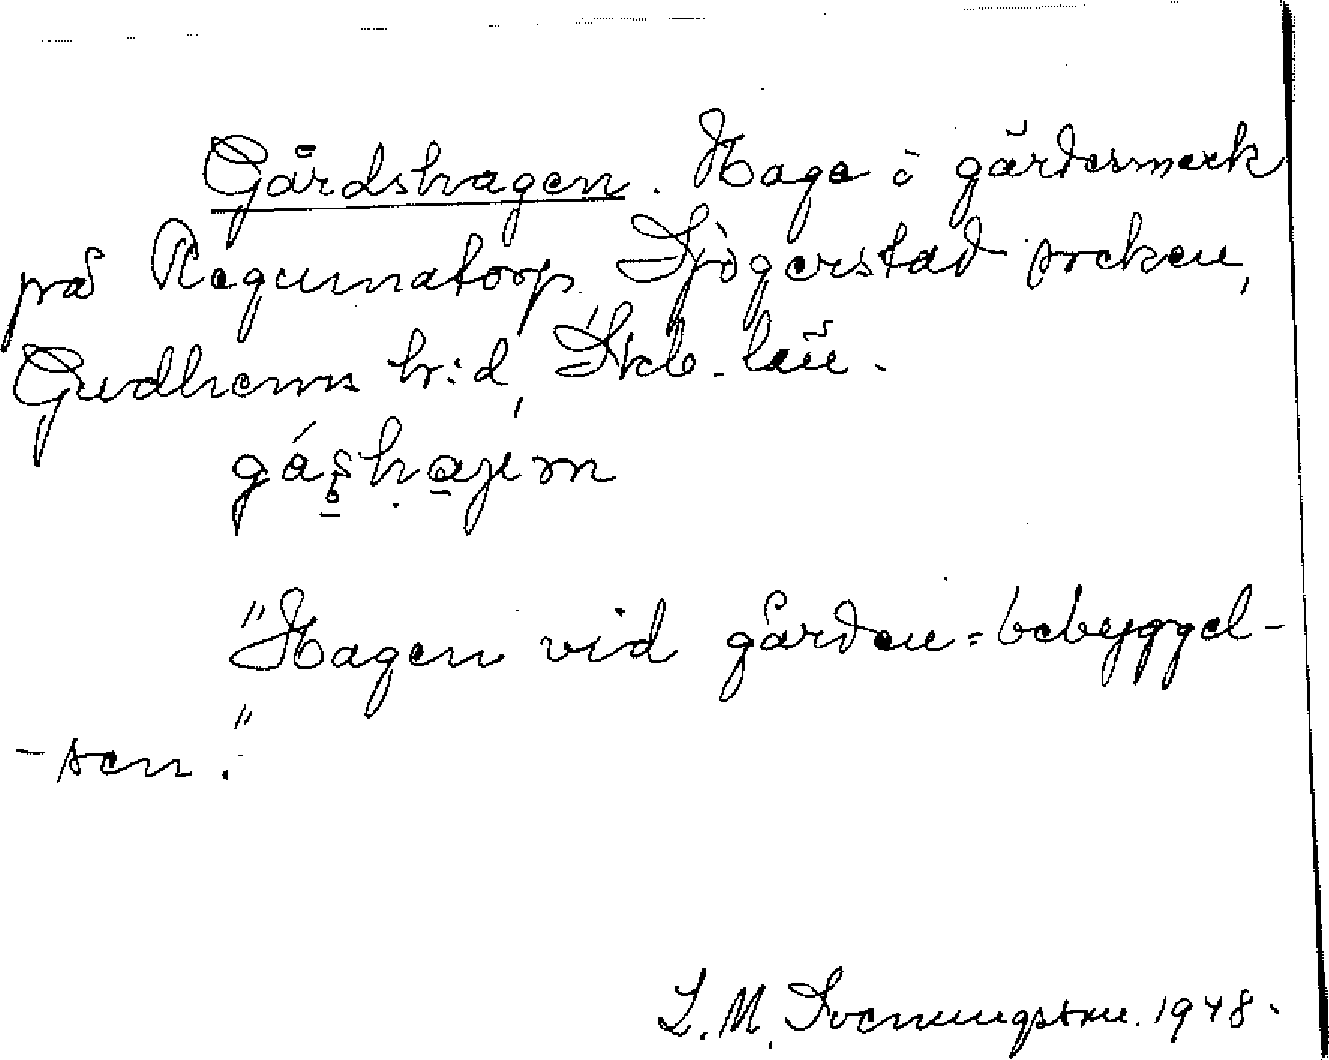 Gårdshagen. Hage i gärdesmark
på Regumatorp, Sjögerstad socken,
Gudhems h:d, Skb. län.
"Hagen vid gården = bebyggel-
-sen."
L. M. Svenungsson. 1948.